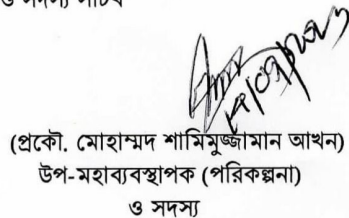 ও সদস্য সচিব
(প্রকৌ. মোহাম্মদ শামিমুজ্জামান আখন)
উপ-মহাব্যবস্থাপক (পরিকল্পনা)
ও সদস্য